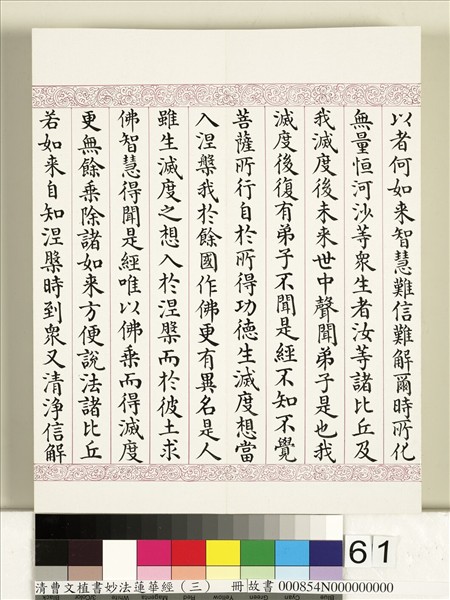 以者何如来智慧難信難解爾時所化
無量恒河沙等衆生者汝等諸比丘及
我滅度後未来世中聲聞弟子是也我
滅度後復有弟子不聞是經不知不覺
菩薩所行自於所得功德生滅度想當
入涅槃我於餘國作佛更有異名是人
雖生滅度之想入於涅槃而於彼土求
佛智慧得聞是經唯以佛乘而得滅度
更無餘乘除諸如来方便說法諸比丘
若如来自知涅槃時到衆又清淨信解
61
清曹文植書妙法蓮華經（三） 冊 故書 000854N000000000